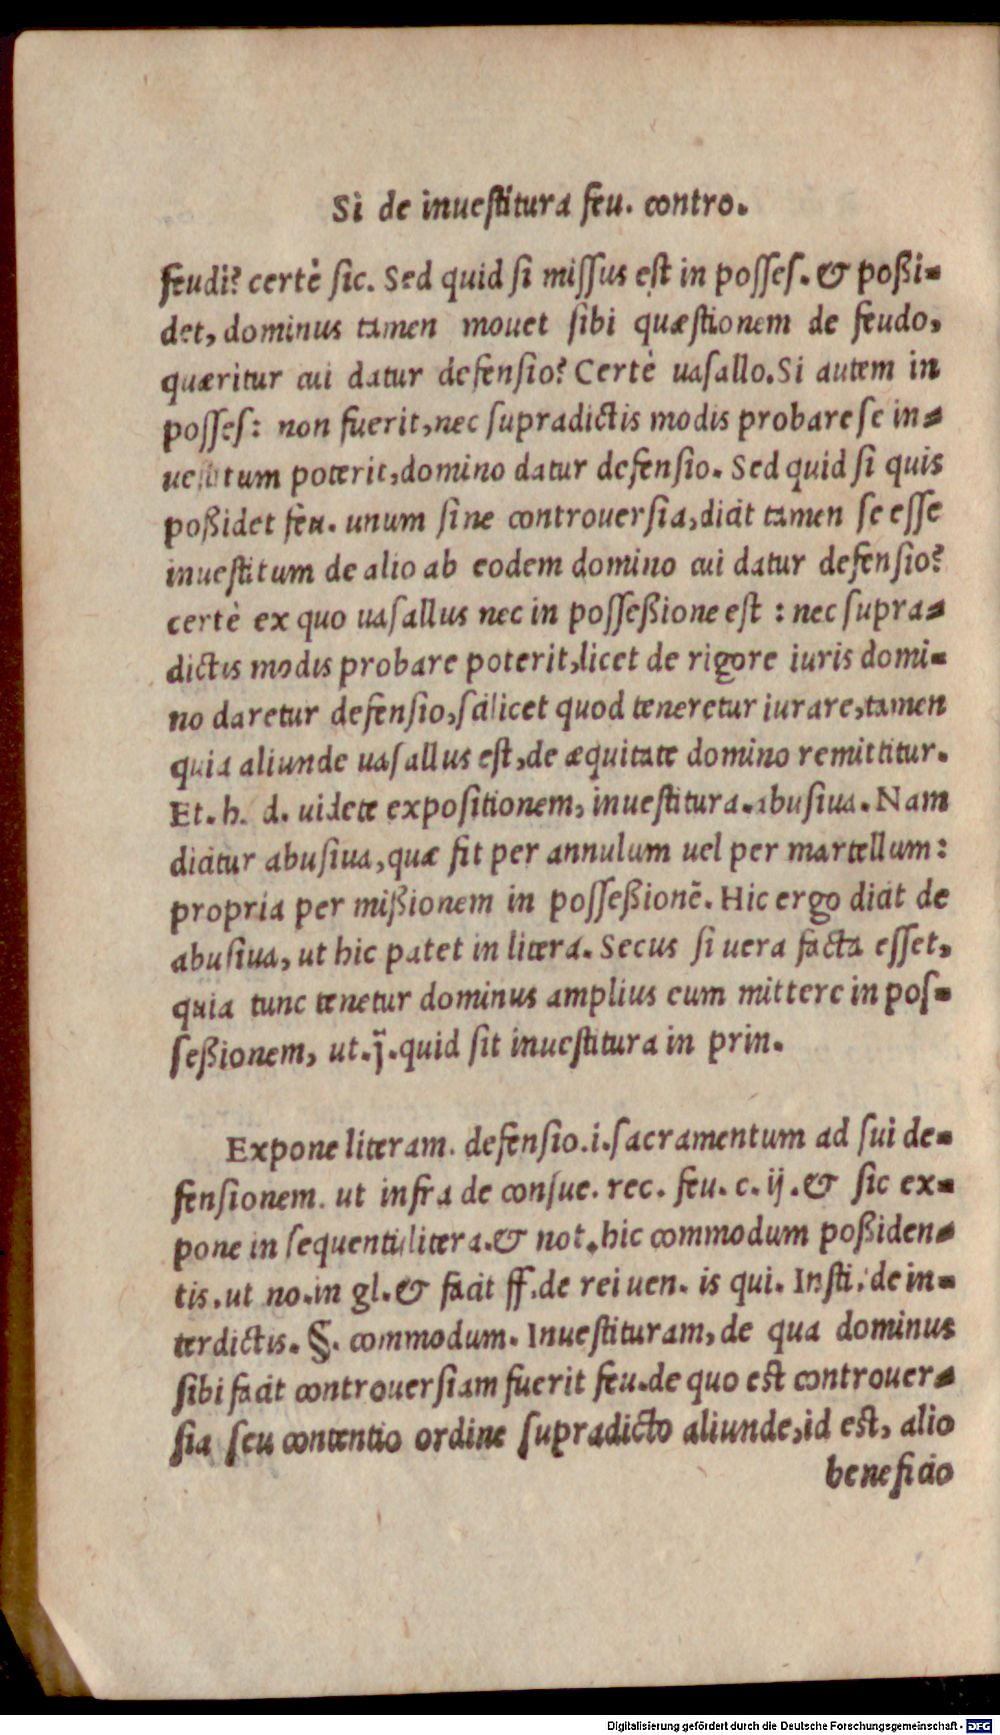 Si de inuestitura feu. contro.
feudi? certè sic. Sed quid si missus est in posses. & poßi-
det, dominus tamen mouet sibi quæstionem de feudo,
quæritur cui datur defensio? Certè uasallo. Si autem in
posses: non fuerit, nec supradictis modis probare se in-
uestitum poterit, domino datur defensio. Sed quid si quis
poßidet feu. unum sine controuersia, dicit tamen se esse
inuestitum de alio ab eodem domino cui datur defensio?
certè ex quo uasallus nec in posseßione est : nec supra-
dictis modis probare poterit, licet de rigore iuris domi-
no daretur defensio, scilicet quod teneretur iurare, tamen
quia aliunde uasallus est, de æquitate domino remittitur.
Et. h. d. uidete expositionem, inuestitura. abusiua. Nam
dicitur abusiua, quæ fit per annulum uel per martellum:
propria per mißionem in posseßionẽ. Hic ergo dicit de
abusiua, ut hic patet in litera. Secus si uera facta esset,
quia tunc tenetur dominus amplius eum mittere in pos-
seßionem, ut. j̃. quid sit inuestitura in prin.
Expone literam. defensio. i. sacramentum ad sui de-
fensionem. ut infra de consue. rec. feu. c. ij. & sic ex-
pone in sequenti litera. & not. hic commodum poßiden-
tis. ut no. in gl. & facit ff. de rei uen. is qui. Insti. de in-
terdictis. §. commodum. Inuestituram, de qua dominus
sibi facit controuersiam fuerit feu. de quo est controuer-
sia seu contentio ordine supradicto aliunde, id est, alio
beneficio
Digitalisierung gefördert durch die Deutsche Forschungsgemeinschaft - DFG